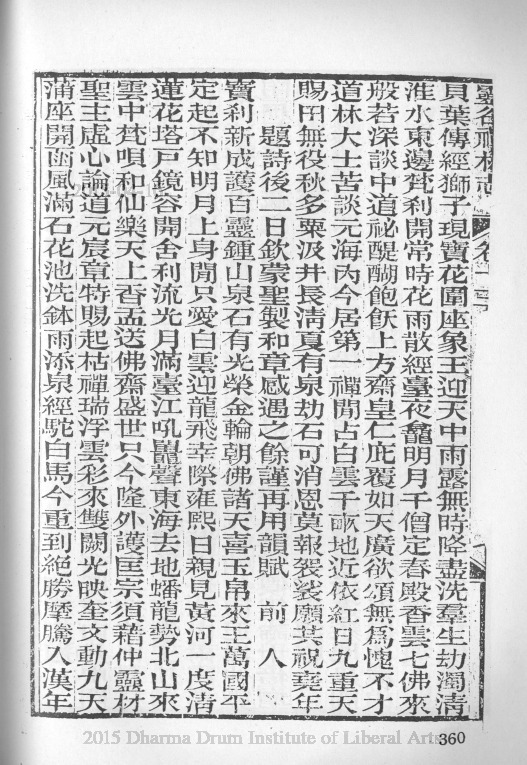 靈谷禪林志 卷十三
貝葉傳經獅子現寶花圍座象王迎天中雨露無時降盡洗羣生劫濁清
淮水東邊梵刹開常時花雨散經臺夜龕明月千僧定春殿香雲七佛來
般若深談中道祕醍醐飽飫上方齋皇仁庇覆如天廣欲頌無爲愧不才
道林大士苦談元海內今居第一禪閒占白雲千畝地近依紅日九重天
賜田無役秋多粟汲井長清夏有泉劫石可消恩莫報袈裟願共祝堯年
題詩後二日欽蒙聖製和章感遇之餘謹再用韻賦 前人
寶刹新成護百靈鍾山泉石有光榮金輪朝佛諸天喜玉帛來王萬國平
定起不知明月上身閒只愛白雲迎龍飛幸際雍熙日親見黃河一度清
蓮花塔戸鏡容開舍利流光月滿臺江吼鼉聲東海去地蟠龍勢北山來
雲中梵唄和仙樂天上香盂送佛齋盛世只今隆外護匡宗須藉仲靈材
聖主虛心論道元宸章特賜起枯禪瑞浮雲彩來雙闕光映奎文動九天
蒲座開函風滿石花池洗鉢雨添泉經駝白馬今重到絕勝摩騰入漢年
360
2015 Dharma Drum Institute of Liberal Arts